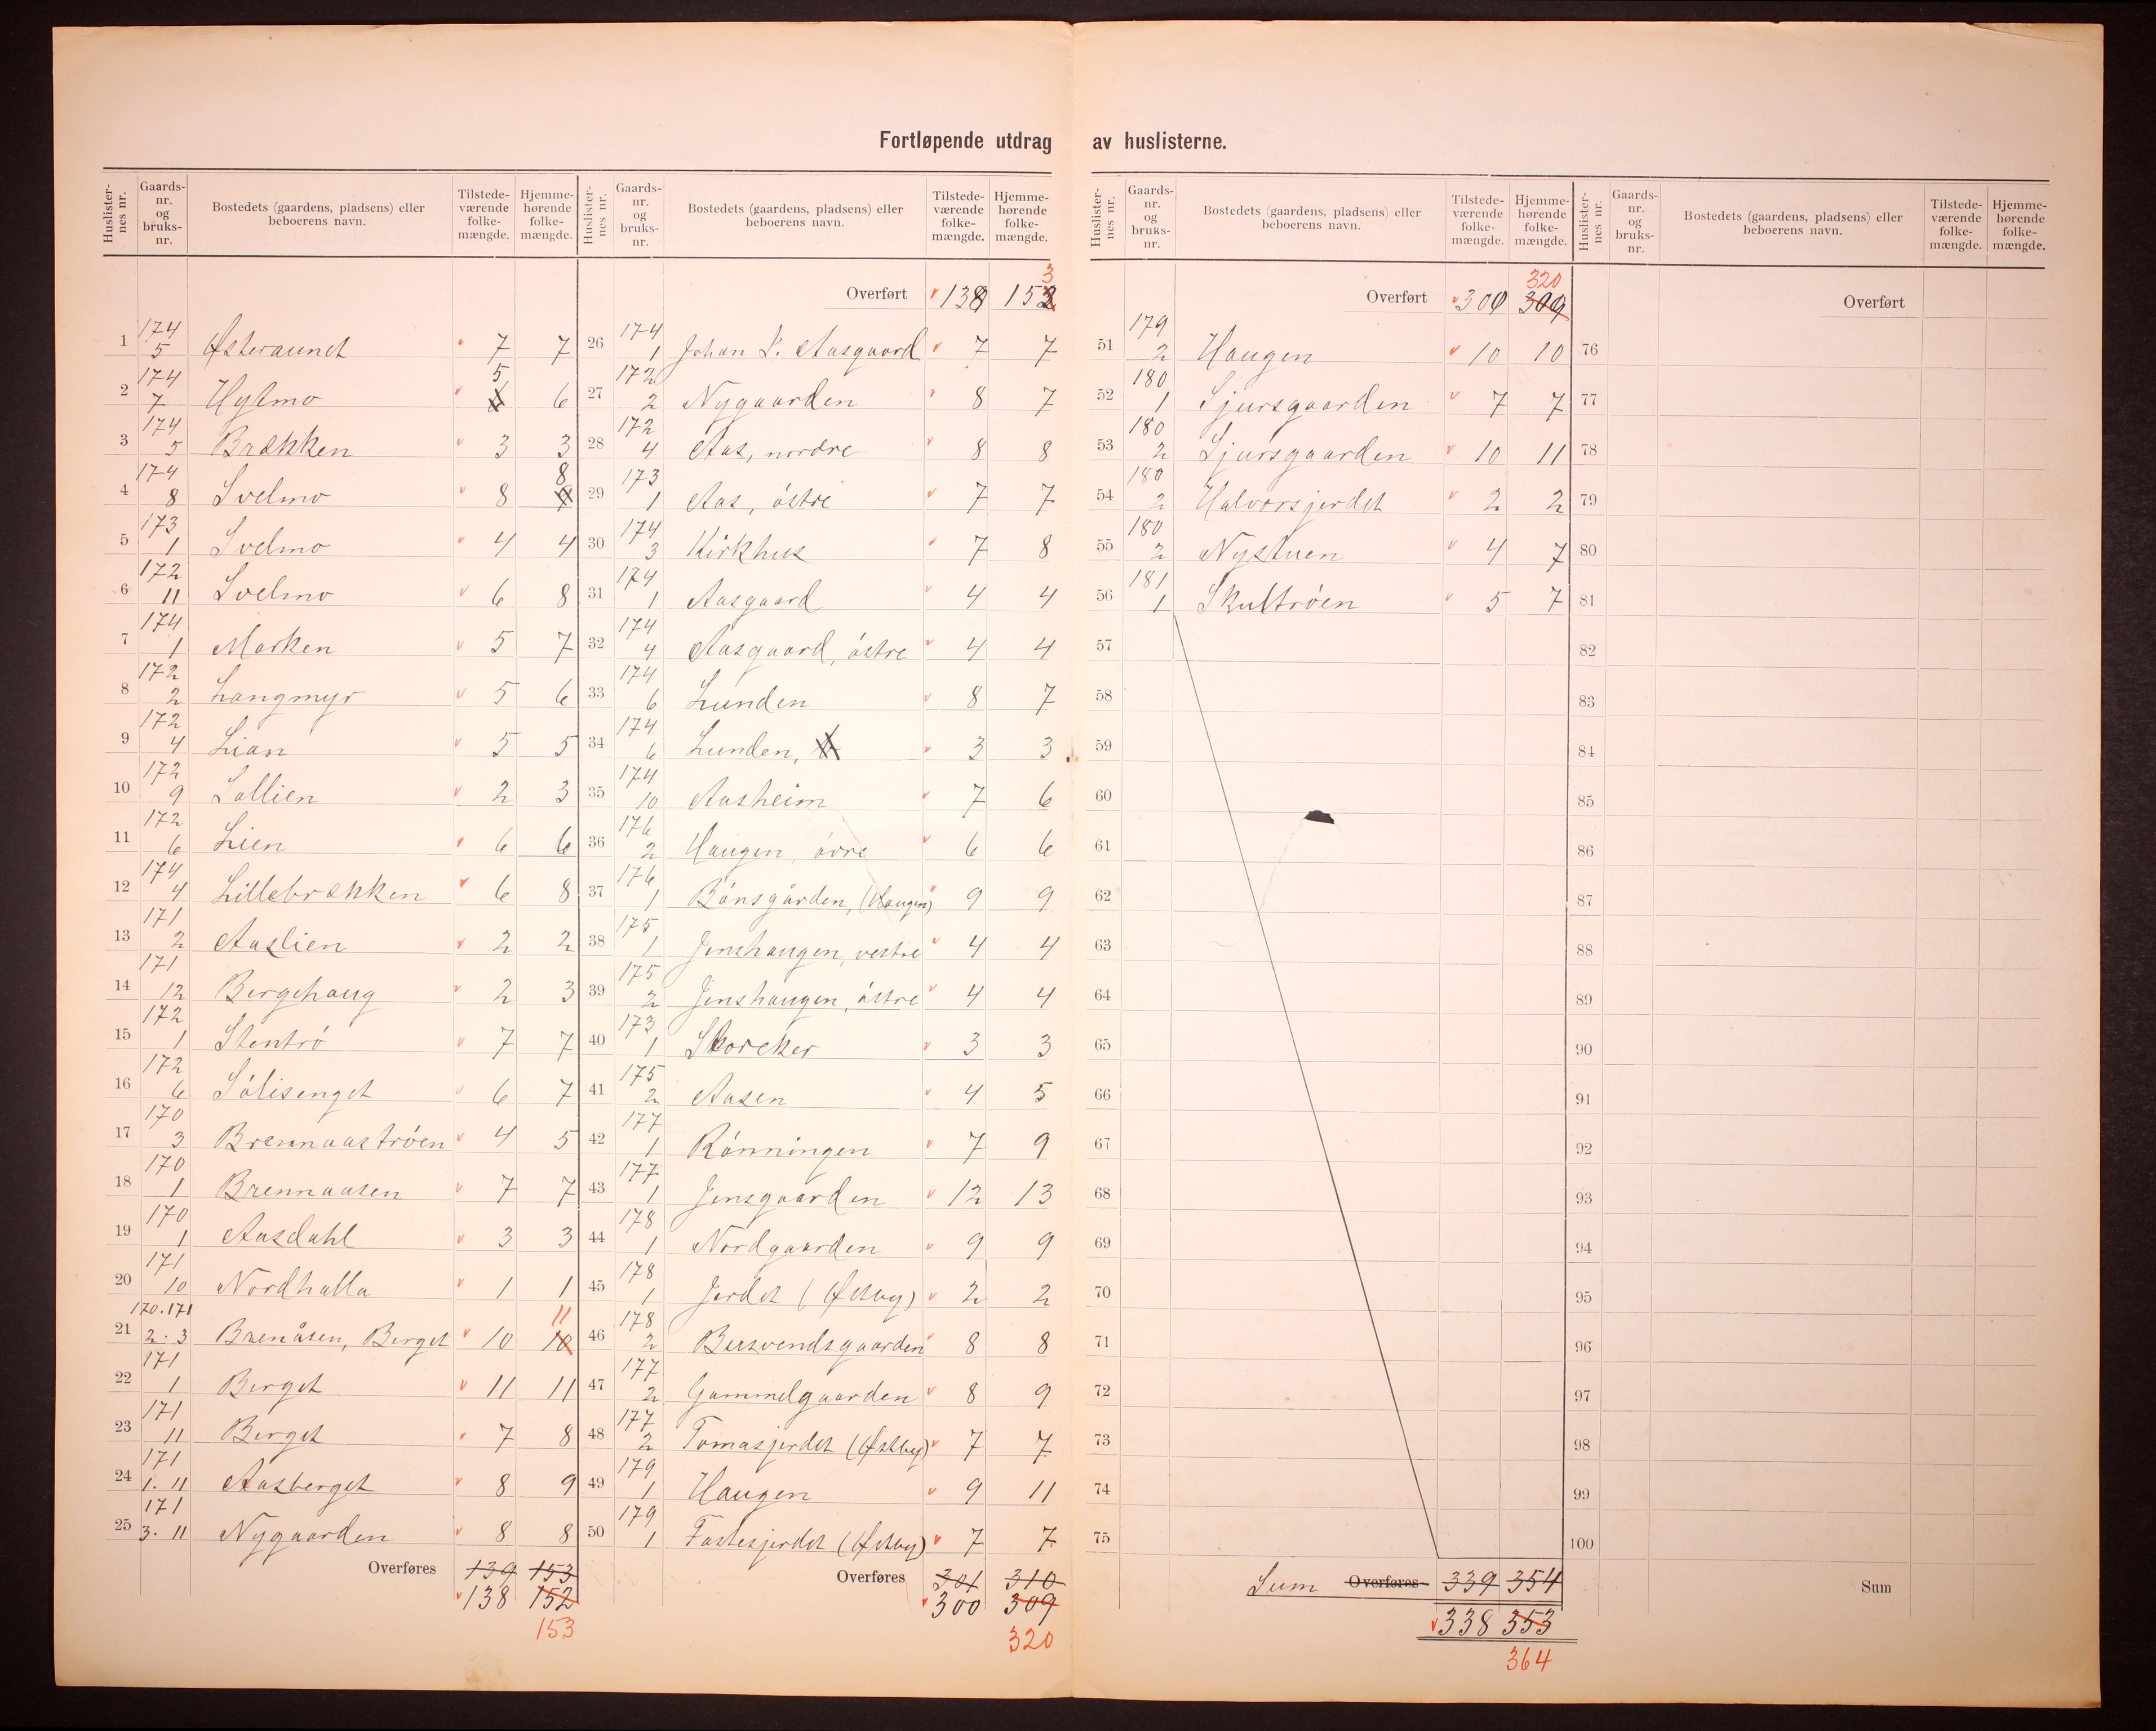 Fortløpende utdrag av huslisterne.
Huslisternes nr. Gaards-nr. og bruks-nr. Bostedets (gaardens, pladsens) eller beboerens navn. Tilstedeværende folkemængde. Hjemmehørende folkemængde.
1 174/5 Østeraunet 7 7
2 174/7 Hylmo 5 6
3 174/5 Brækken 3 3
4 174/8 Svelmo 8 8
5 173/1 Svelmo 4 4
6 172/11 Svelmo 6 8
7 174/1 Marken 5 7
8 172/2 Langmyr 5 6
9 172/4 Lian 5 5
10 172/9 Sollien 2 3
11 172/6 Lien 6 6
12 174/4 Lillebrækken 6 8
13 171/2 Aaslien 2 2
14 171/12 Bergehaug 2 3
15 172/1 Stentrö 7 7
16 172/6 Sölisenget 6 7
17 170/3 Brennaaströen 4 5
18 170/1 Brennaasen 7 7
19 170/1 Aasdahl 3 3
20 171/10 Nordhalla 1 1
21 170.171/2.3 Brenåsen, Berget 10 10 11
22 171/1 Berget 11 11
23 171/11 Berget 7 8
24 171/1.11 Aasberget 8 9
25 171/3.11 Nygaarden 8 8
Overføres 139 153
138 152
153
Huslisternes nr. Gaards-nr. og bruks-nr. Bostedets (gaardens, pladsens) eller beboerens navn. Tilstedeværende folkemængde. Hjemmehørende folkemængde.
Overført 138 152 3
26 174/1 Johan L. Aasgaard 7 7
27 172/2 Nygaarden 8 7
28 172/4 Aas, nordre 8 8
29 173/1 Aas, östre 7 7
30 174/3 Kirkhus 7 8
31 174/1 Aasgaard 4 4
32 174/4 Aasgaard, östre 4 4
33 174/6 Lunden 8 7
34 174/6 Lunden, 3 3
35 174/10 Aasheim 7 6
36 176/2 Haugen, övre 6 6
37 176/1 Bönsgården, (Haugen) 9 9
38 175/1 Jenshaugen, vestre 4 4
39 175/2 Jenshaugen, östre 4 4
40 173/1 Skoreker 3 3
41 175/2 Aasen 4 5
42 177/1 Rönningen 7 9
43 177/1 Jensgaarden 12 13
44 178/1 Nordgaarden 9 9
45 178/1 Jerdet (Østby) 2 2
46 178/2 Busvendsgaarden 8 8
47 177/2 Gammelgaarden 8 9
48 177/2 Tomasjerdet (Østby) 7 7
49 179/1 Haugen 9 11
50 179/1 Fastesjerdet (Østby) 7 7
Overføres 301 310
300 309
320
Huslisternes nr. Gaards-nr. og bruks-nr. Bostedets (gaardens, pladsens) eller beboerens navn. Tilstedeværende folkemængde. Hjemmehørende folkemængde.
320
Overført 300 309
51 179/2 Haugen 10 10
52 180/1 Sjursgaarden 7 7
53 180/2 Sjursgaarden 10 11
54 180/2 Halvorsjerdet 2 2
55 180/2 Nystuen 4 7
56 181/1 Skultröen 5 7
57
58
59
60
61
62
63
64
65
66
67
68
69
70
71
72
73
74
75
Sum Overføres 339 354
338 353
364
Huslisternes nr. Gaards-nr. og bruks-nr. Bostedets (gaardens, pladsens) eller beboerens navn. Tilstedeværende folkemængde. Hjemmehørende folkemængde.
Overført
76
77
78
79
80
81
82
83
84
85
86
87
88
89
90
91
92
93
94
95
96
97
98
99
100
Sum